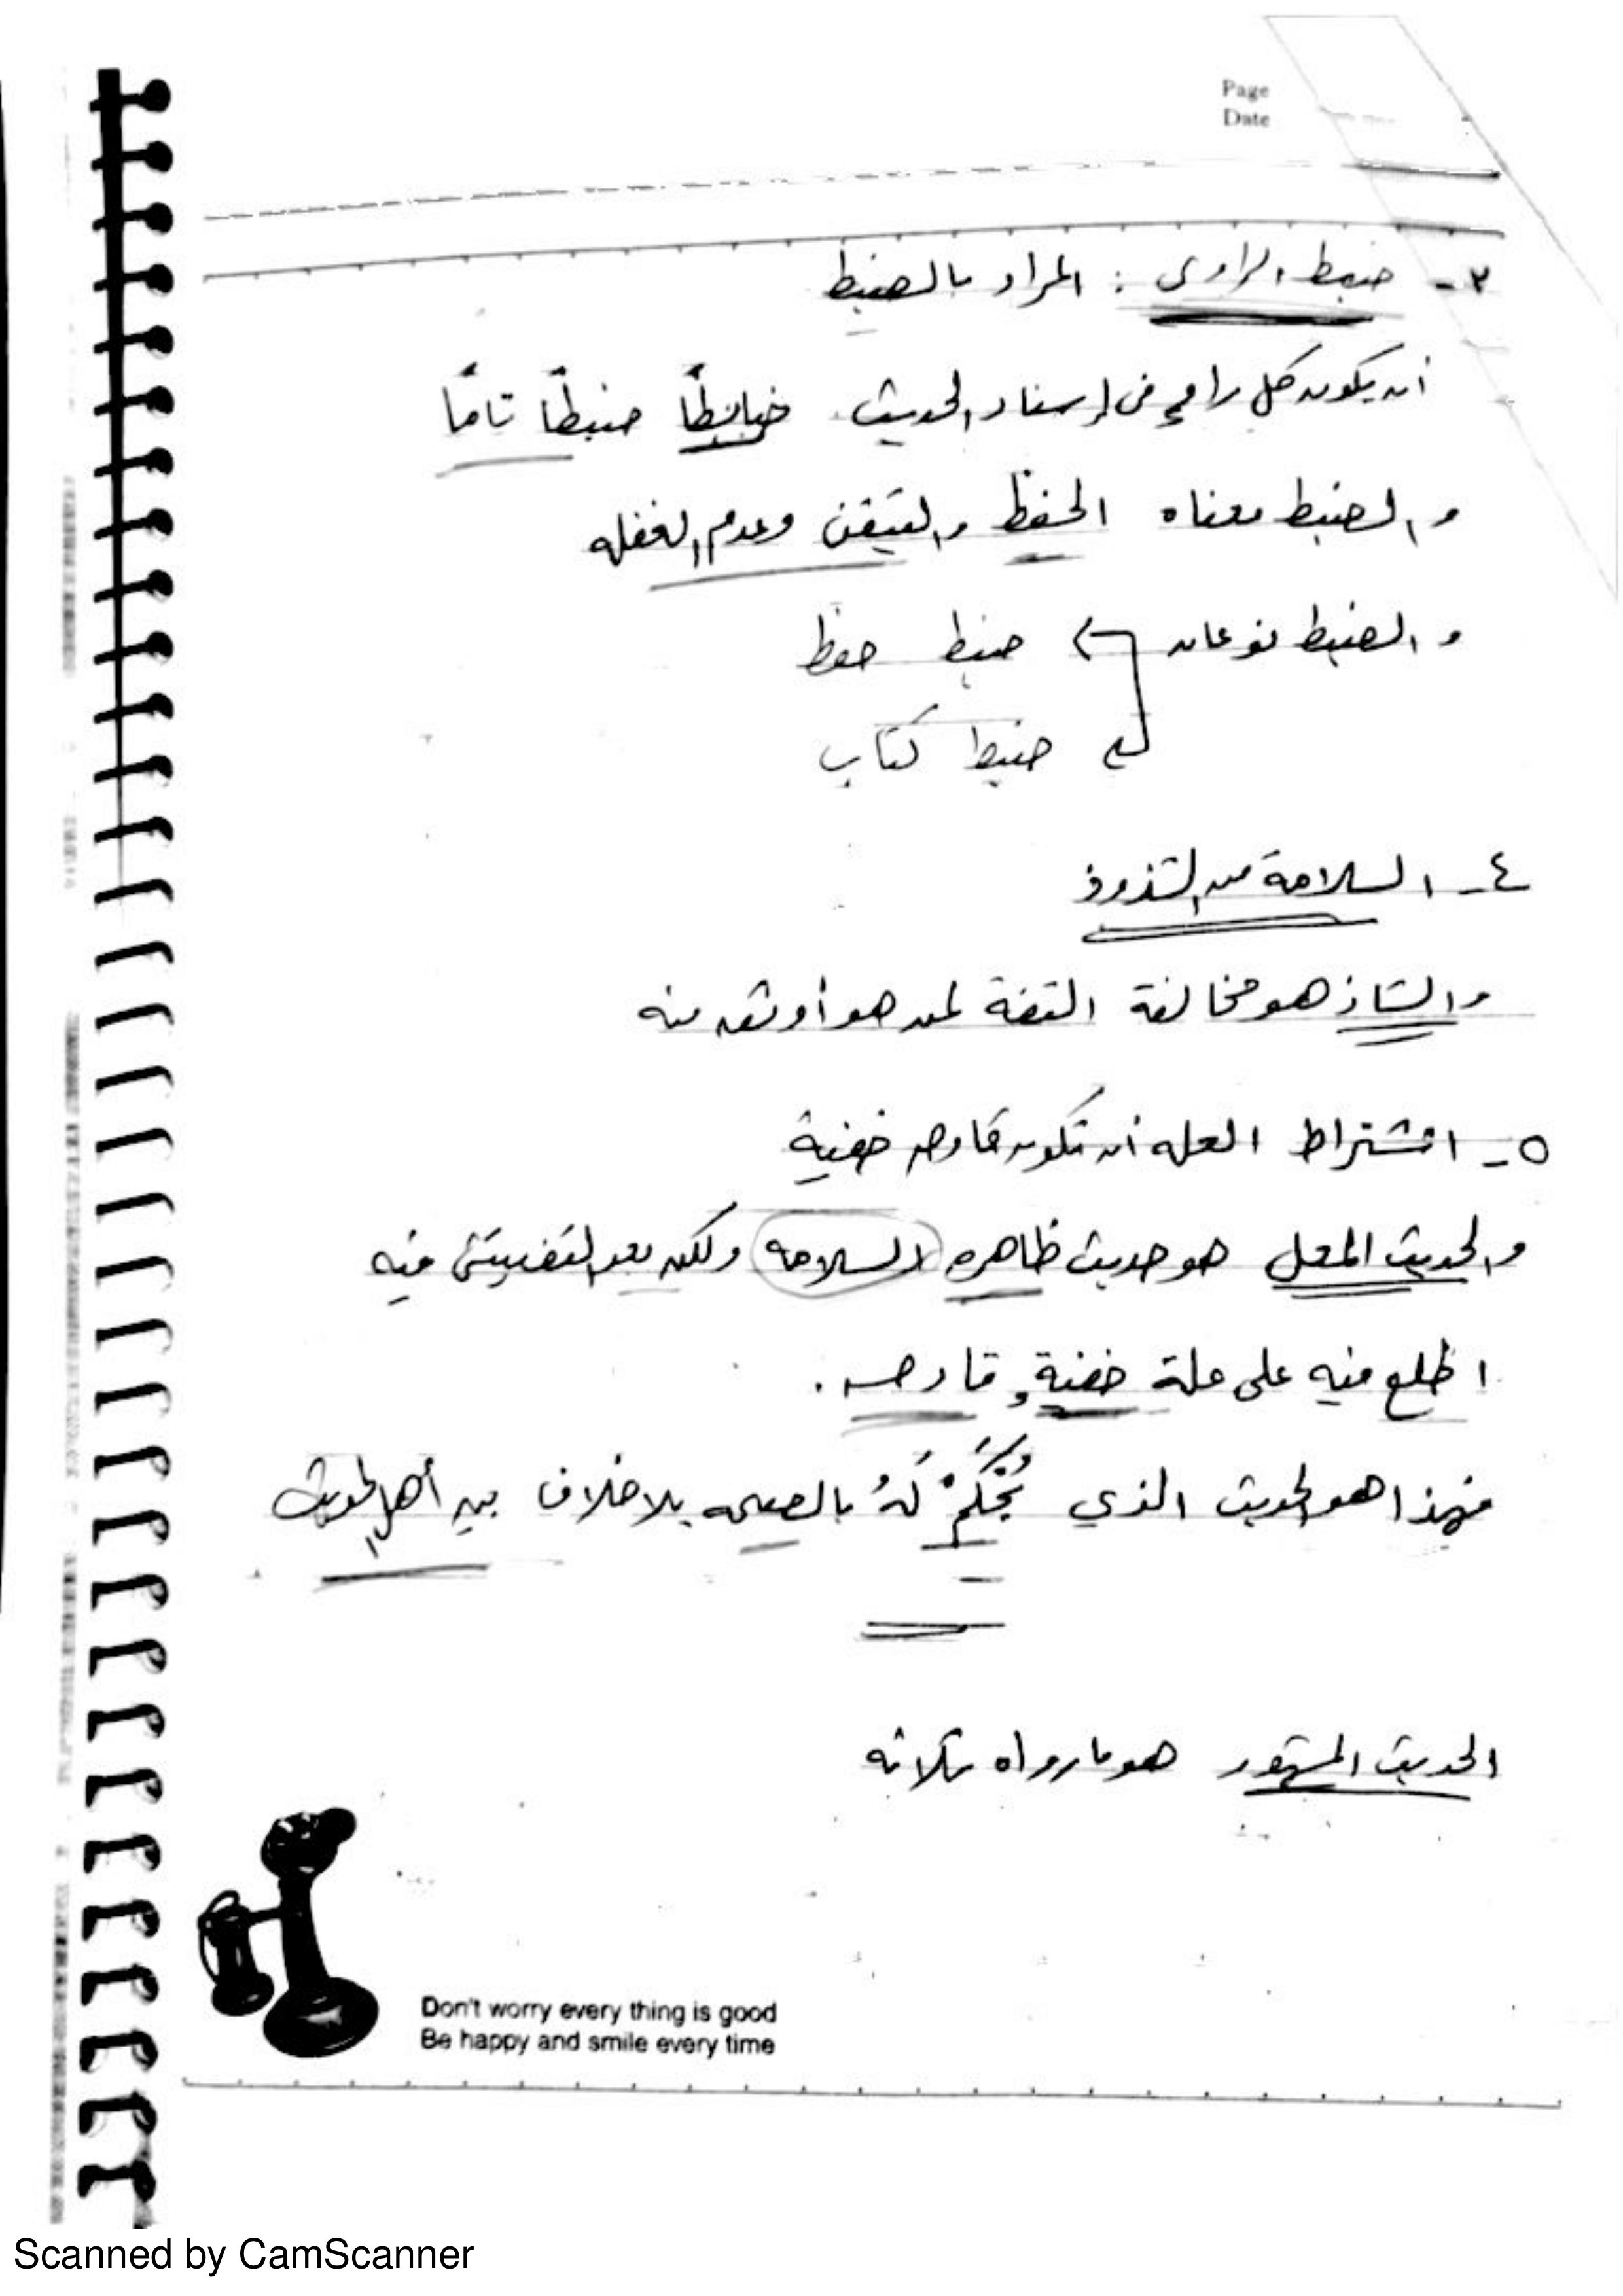 Page
Date
٣- ضبط الراوى : المراد بالضبط
أن يكون كل راوٍ فى إسناد الحديث ضابطًا ضبطًا تامًا
والضبط معناه الحفظ والتيقن وعدم الغفله
والضبط نوعان ضبط حفظ
ضبط كتاب
٤- السلامة من الشذوذ
والشاذ هو مخالفة الثقة لمن هو أوثق منه
٥- اشتراط العله أن تكون قادحه خفية
والحديث المعل هو حديث ظاهره السلامه ولكن بعد التفتيش فيه
اطلع فيه على علة خفية وقادحه .
فهذا هو الحديث الذي يُحْكَمُ لَهُ بالصحه بلا خلاف بين أهل الحديث
الحديث المشهور هو ما رواه ثلاثه
Don't worry every thing is good
Be happy and smile every time
Scanned by CamScanner